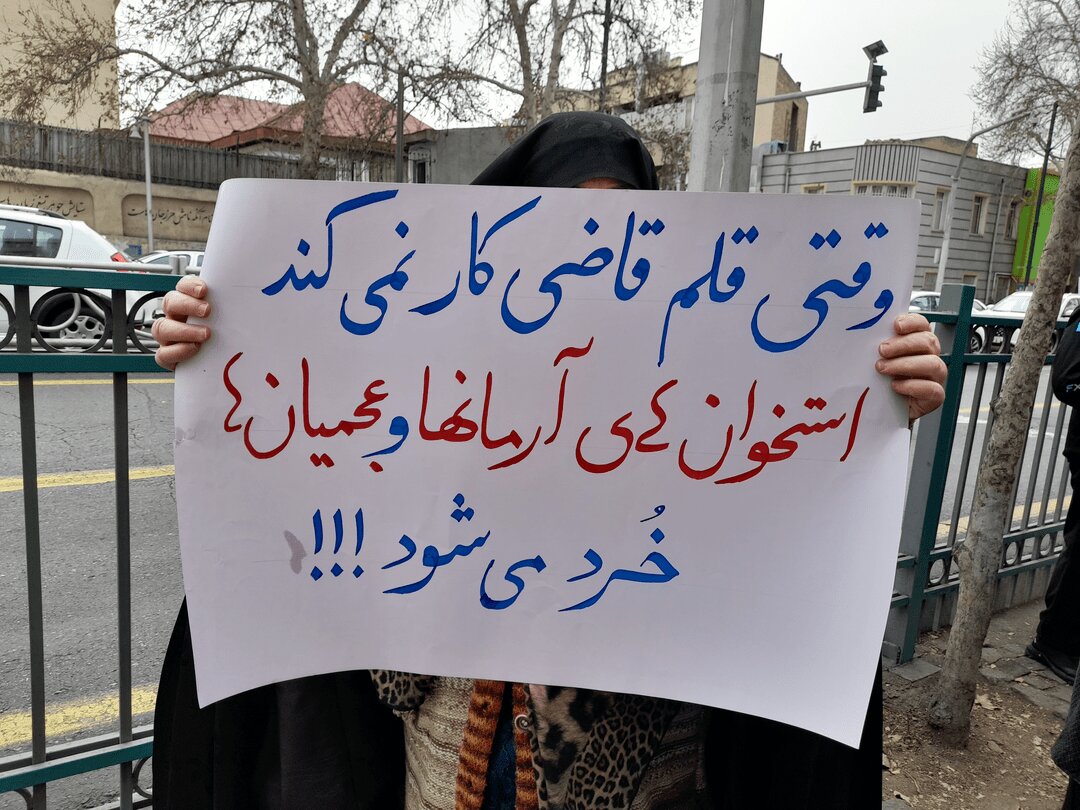 وقتی قلم قاضی کار نمی کند
استخوان کےی آرمانها و عجمیان ها
خُرد می شود !!!